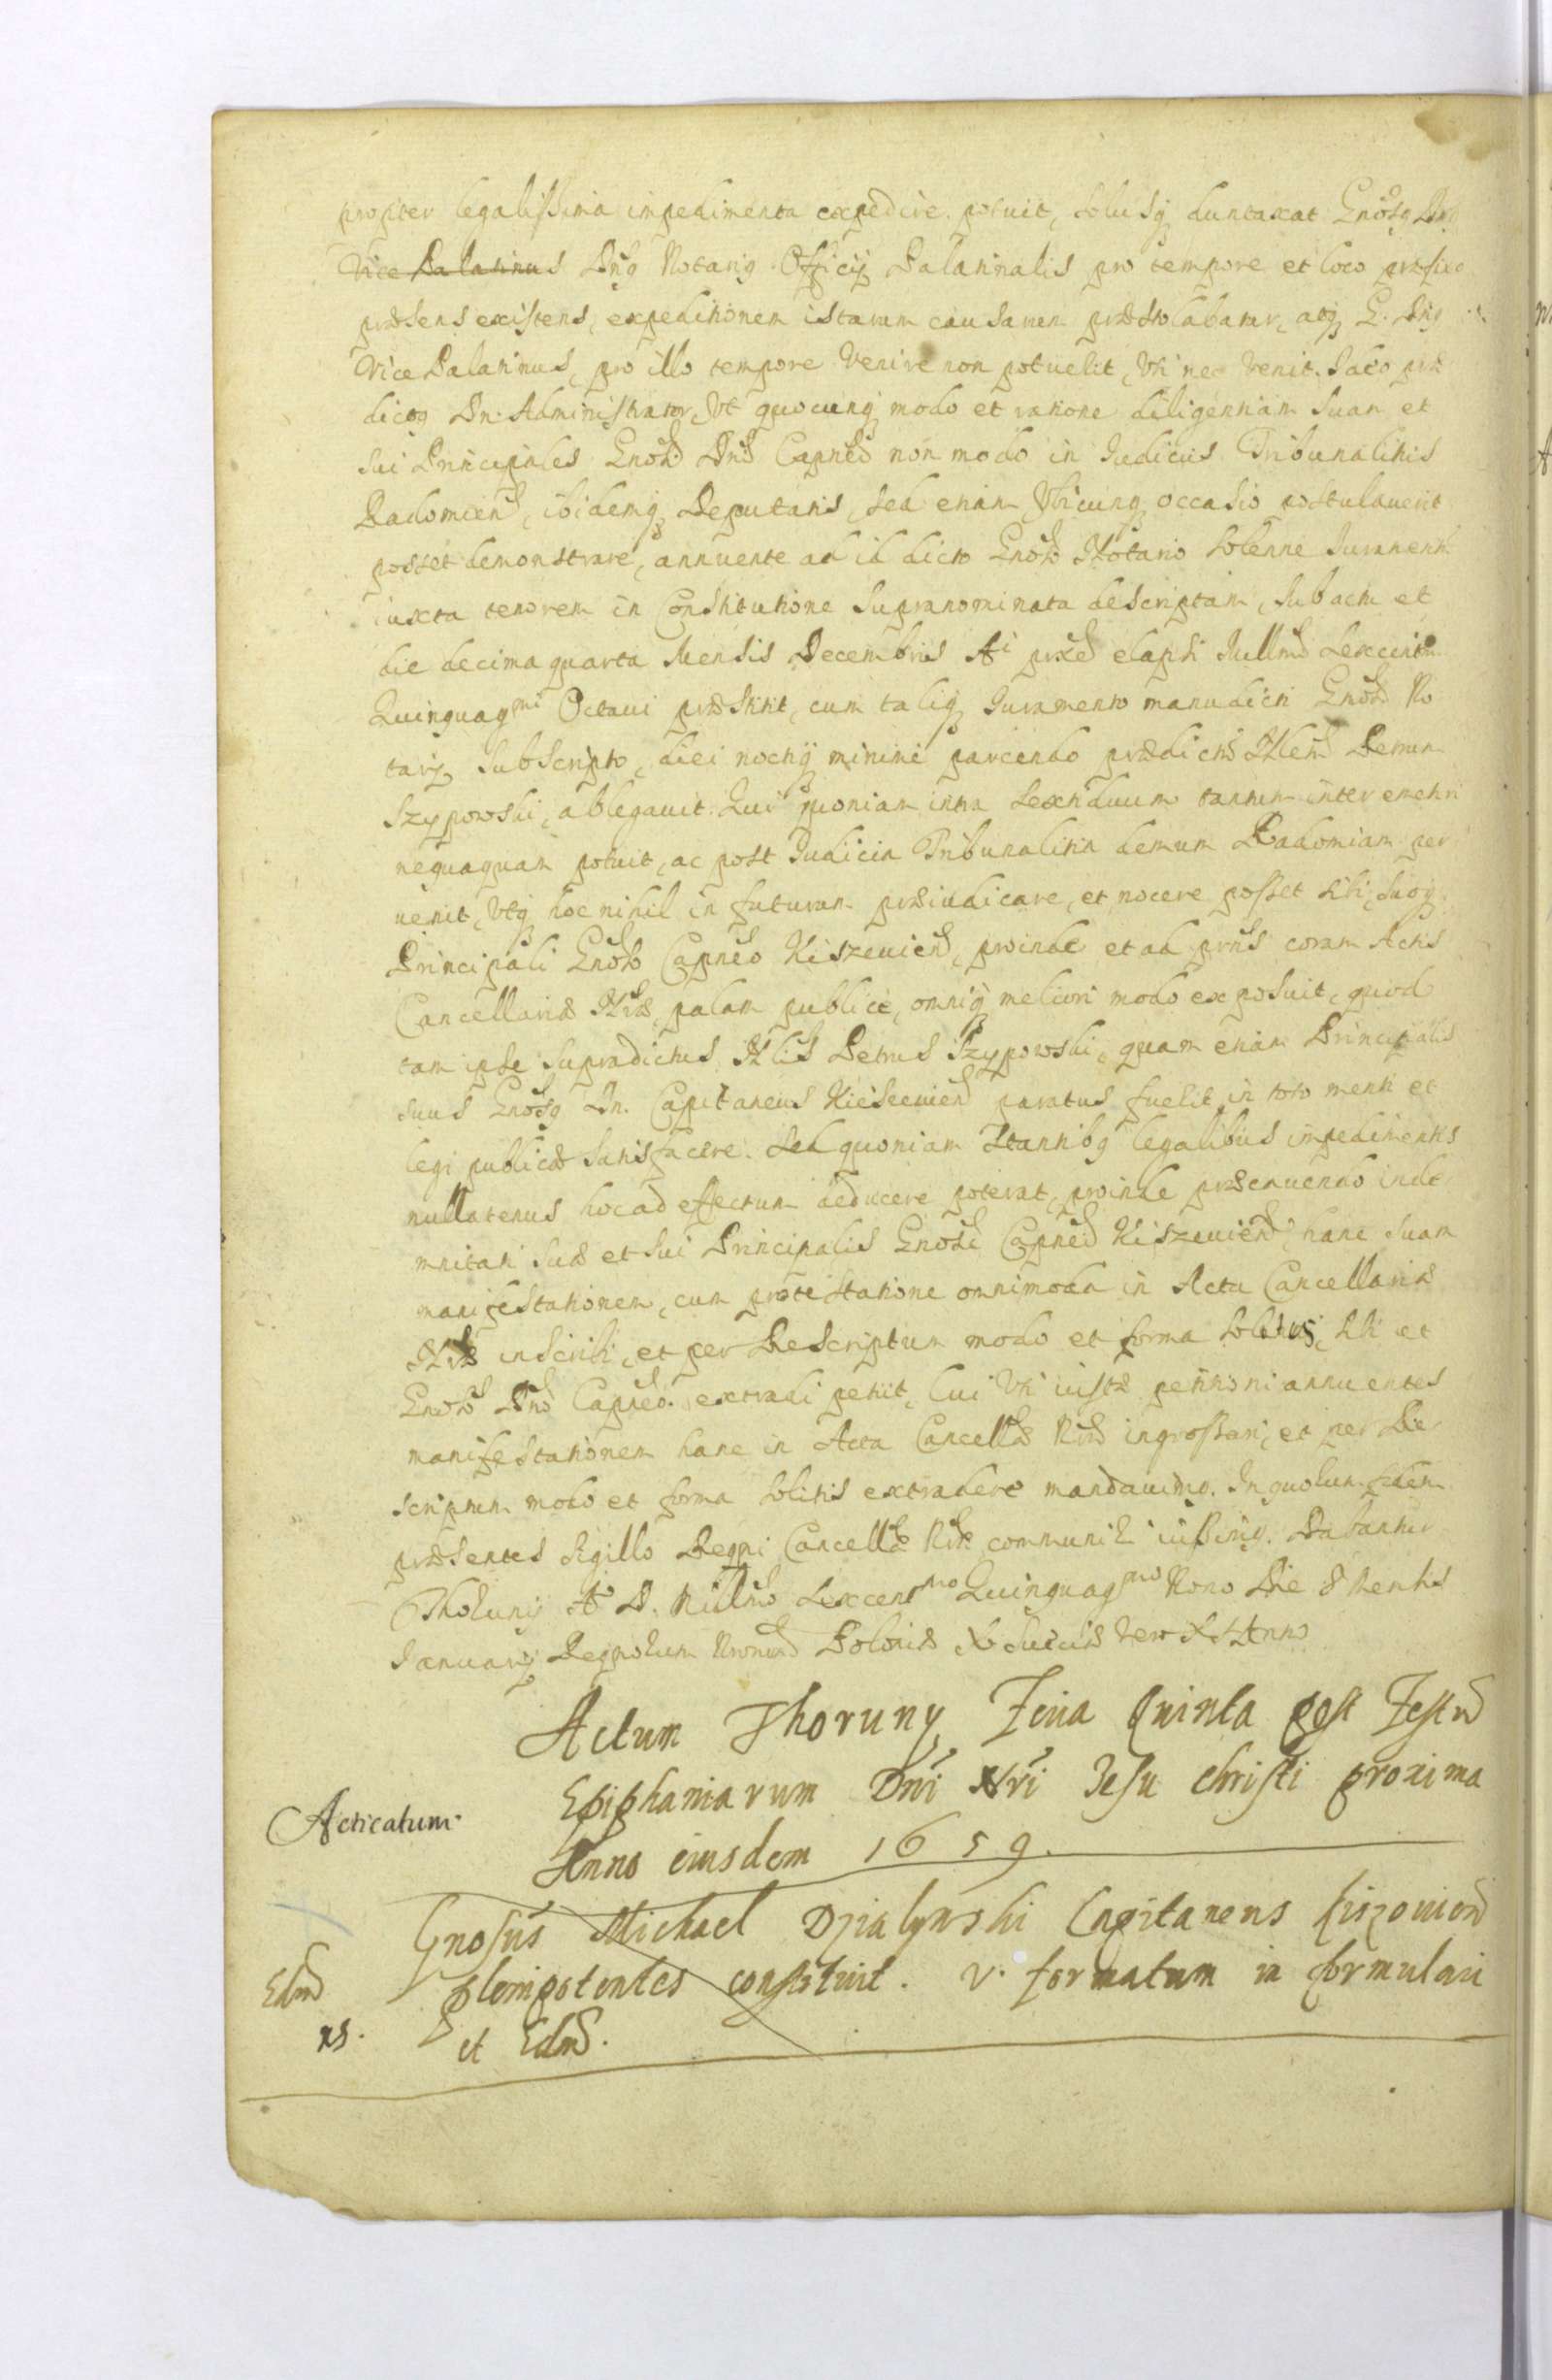 propter legalissima impedimenta expedire potuit, solusq duntaxat Gnosq Dnq
Vice Palatinus Dnq Notariq Officij Palatinalis pro tempore et loco præfixo
præsens existens, expeditionem istarum causarum præstolabatur, atq G. Dnq
Vice Palatinus, pro illo tempore venire non potuerit, Uti nec venit. Iaco præ
dictq Dn. Administrator, Vt quocunq modo et ratione diligentiam suam et
sui Principales Gnosi Dni Capnei non modo in Iudicijs Tribunalitijs
Radomien, ibidemq Deputatis, sed etiam Vbicunq occasio postulauerit
posset demonstrare, annuente ad id dicto Gnoso Notario solenne Iuramenti
iuxta tenorem in Constitutione supranominata descriptam, sub actu et
die decima quarta Mensis Decembris Ai præd elapsi Millmi Sexcentmi
Quinquagmi Octaui præstitit, cum taliq Iuramento manu dicti Gnosi No
tarij subscripto, diei noctiq minime parcendo prædictu Nlem Petrum
Szypowski, ablegauit. Qui quoniam intra sexduum tantum iter emetiri
nequaquam potuit, ac post Iudicia Tribunalitia demum Radomiam per
uenit, Vtq hoc nihil in futurum præiudicare, et nocere posset sibi, suoq
Principali Gnoso Capneo Kiszeuien, proinde et ad prns coram Actis
Cancellariæ Nræ, palam publice, omniq meliori modo exposuit, quod
tam ipse supradictus Nlis Petrus Szypowski, quam etiam Principalis
suus Gnosq Dn. Capitaneus Kiszeuien paratus fuerit in toto menti et
legi publicæ satisfacere. Sed quoniam stantibq legalibus impedimentis
nullatenus hoc ad effectum deducere poterat, proinde præcauendo inde
mnitati suæ et sui Principalis Gnosi Capnei Kiszeuien, hanc suam
manifestationem, cum protestatione omnimoda in Acta Cancellariæ
Nræ inscribi, et per Rescriptum modo et forma solitis, sibi et
Gnoso Dno Capneo. extradi petiit, Cui Vti iustæ petitioni annuentes
manifestationem hanc in Acta Cancellæ Nræ ingrossari, et per Re
scriptum modo et forma solitis extradere mandauimq. In quorum fidem
præsentes Sigillo Regni Cancellæ Nræ communiri iussimq. Dabantur
Thorunij Ao D. Millmo Sexcentmo Quinquagmo Nono Die 8 Mensis
Ianuarij Regnorum Nrorum Poloniæ Sueciæ vero Anno
Actum Thoruny Feria Quinta post Festu
Epiphaniarum Dni Nri Iesu Christi proxima
Acticatum.
Anno eiusdem 1659.
Gnosus Michael Dzialynski Capitaneus Kiszouien
Edm plenipotentes constituit. v. formatum in formulari
xs. et Edm.